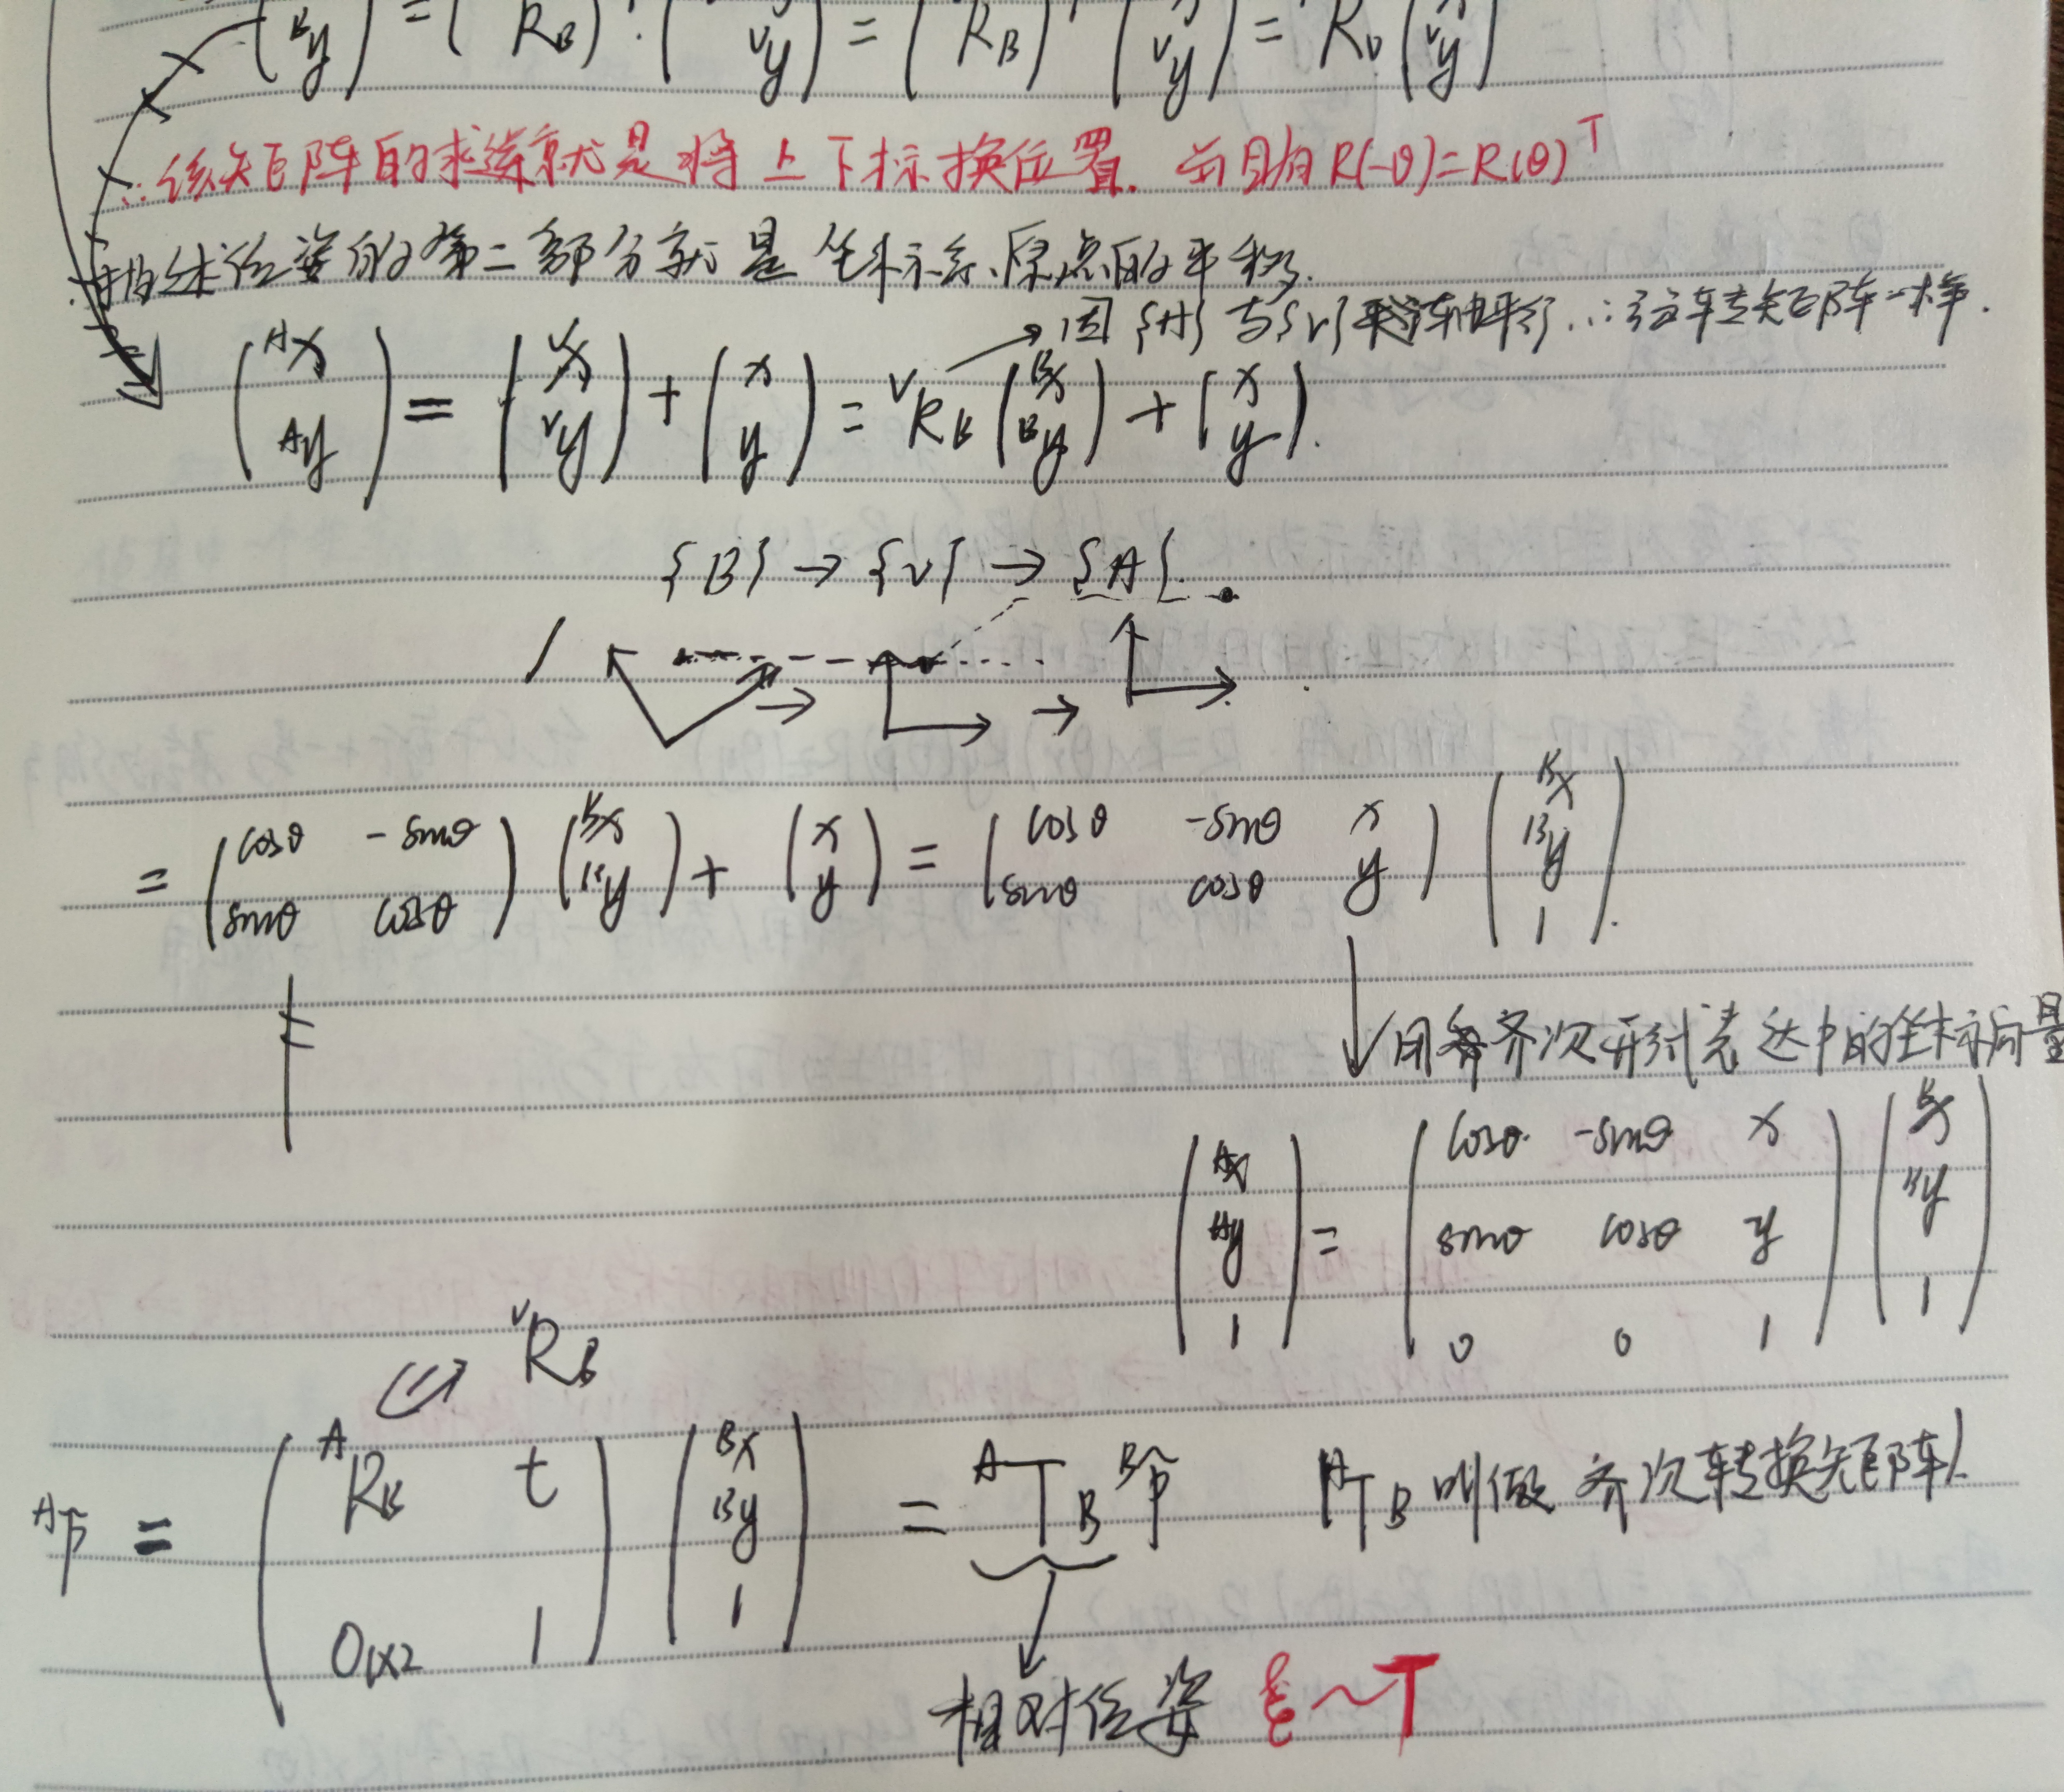 (ᴮy) = ( R_B)· ( ⱽy) = ( R_B) ( ⱽy) = R ( ⱽy)
∴该矩阵的求逆就是将上下标换位置. 而且有R(-θ)=R(θ)ᵀ
描述位姿的第二部分就是坐标系原点的平移.
→因{A}与{V}轴平行.∴旋转矩阵一样.
(ᴬx ᴬy) = (ⱽx ⱽy) + (x y) = ⱽR_B (ᴮx ᴮy) + (x y).
{B} → {V} → {A}.
= (cosθ -sinθ sinθ cosθ) (ᴮx ᴮy) + (x y) = (cosθ -sinθ x sinθ cosθ y) (ᴮx ᴮy 1).
用齐次形式表达中的坐标向量
(ᴬx ᴬy 1) = (cosθ -sinθ x sinθ cosθ y 0 0 1) (ᴮx ᴮy 1)
ⱽR_B
ᴬp̃ = (ᴬR_B t 0₁ₓ₂ 1) (ᴮx ᴮy 1) = ᴬT_B ᴮp̃ ᴬT_B 叫做齐次转换矩阵!
相对位姿 ξ~T